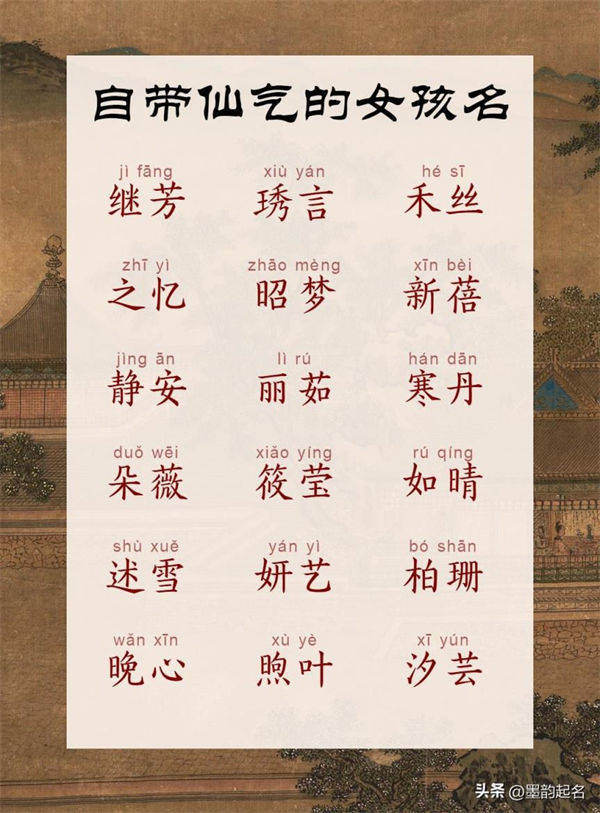 自带仙气的女孩名
jì fāng xiù yán hé sī
继芳 琇言 禾丝
zhī yì zhāo mèng xīn bèi
之忆 昭梦 新蓓
jìng ān lì rú hán dān
静安 丽茹 寒丹
duǒ wēi xiǎo yíng rú qíng
朵薇 筱莹 如晴
shù xuě yán yì bó shān
述雪 妍艺 柏珊
wǎn xīn xù yè xī yún
晚心 煦叶 汐芸
头条 @墨韵起名